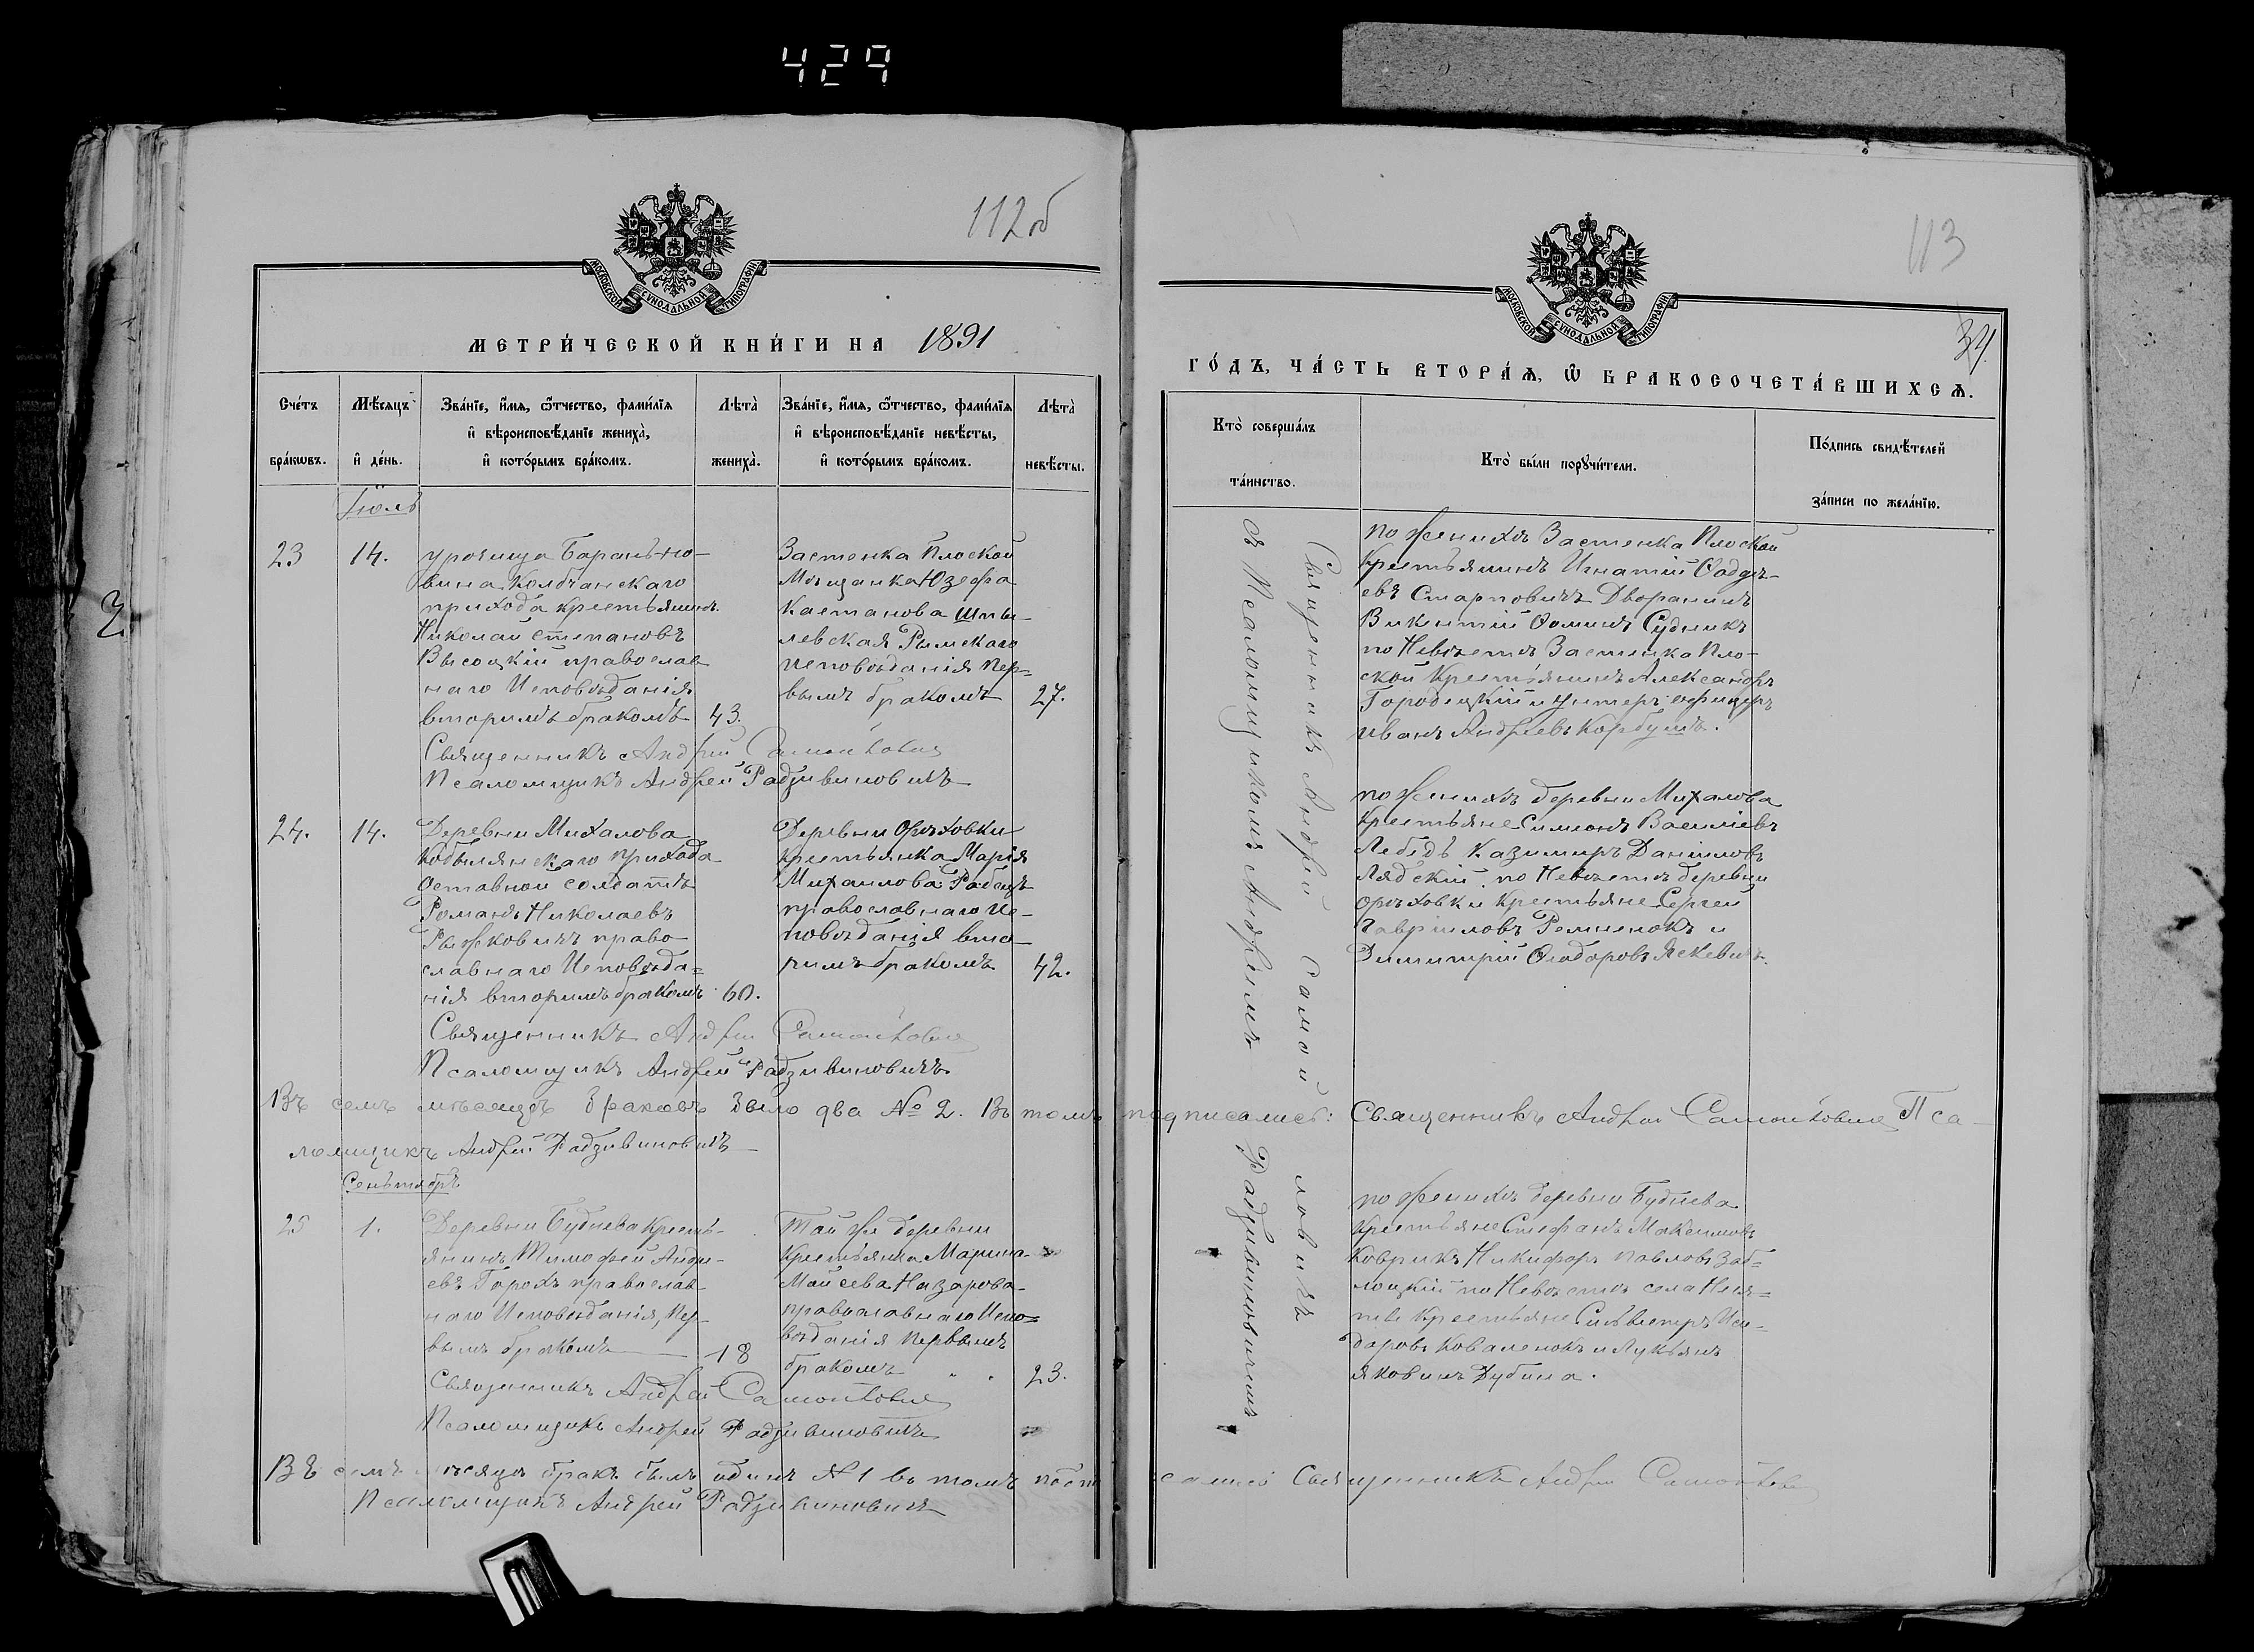 429
112об
МОСКОВСКОЙ СѴНОДАЛЬНОЙ ТИПОГРАФІИ
МЕТРИ́ЧЕСКОЙ КНИ́ГИ НА 1891
Сче́тъ бра́кωвъ.
Мѣ́сяцъ и҆ де́нь.
Зва́нїе, и҆́мѧ, ѻ҆́тчество, фами́лїѧ и҆ вѣроисповѣ́данїе жениха̀, и҆ кото́рымъ бра́комъ.
Лѣта̀ жениха̀.
Зва́нїе, и҆́мѧ, ѻ҆́тчество, фами́лїѧ и҆ вѣроисповѣ́данїе невѣ́сты, и҆ кото́рымъ бра́комъ.
Лѣта̀ невѣ́сты.
Іюль
23
14.
урочища Барань-но-
вина Колбчанскаго
прихода крестьянинъ
Николай Степановъ
Высоцкій православ
наго Исповѣданія
вторимъ бракомъ
43.
Застенка Плоской
Мѣщанка Юзефа
Каетанова Шпы-
левская Римскаго
исповѣданія пер-
вымъ бракомъ
27.
Священникъ Андрей Самойловичъ
Псаломщикъ Андрей Радзивиновичъ
24.
14.
Деревни Михалова
Кобылянскаго прихода
Отставной солдатъ
Романъ Николаевъ
Рыжковичъ право
славнаго Исповѣда=
нія вторимъ бракомъ
60.
Деревни Орѣховки
крестьянка Марія
Михаилова Рабецъ
православнаго Ис-
повѣданія вто-
римъ бракомъ
42.
Священникъ Андрей Самойловичъ
Псаломщикъ Андрей Радзивиновичъ
Въ семъ мѣсяцѣ браковъ было два № 2. Въ томъ подписались: Священникъ Андрей Самойловичъ Пса-
ломщикъ Андрей Радзивиновичъ
Сентябрь
25
1.
Деревни Буднева Кресть-
янинъ Тимофей Андре-
евъ Горохъ православ
наго Исповѣданія, пер-
вымъ бракомъ
18
Той же деревни
Крестьянка Марина
Мойсеева Назарова-
православнаго Испо=
вѣданія первымъ
бракомъ
23.
Священникъ Андрей Самойловичъ
Псаломщикъ Андрей Радзивиновичъ
Въ семъ мѣсяцѣ бракъ былъ одинъ № 1 въ томъ подписались Священникъ Андрей Самойловичъ
Псаломщикъ Андрей Радзивиновичъ
113
34
МОСКОВСКОЙ СѴНОДАЛЬНОЙ ТИПОГРАФІИ
ГО́ДЪ, ЧА́СТЬ ВТОРА́Ѧ, Ѽ БРАКОСОЧЕТА́ВШИХСѦ.
Кто̀ соверша́лъ та́инство.
Кто̀ бы́ли порꙋчи́тели.
По́дпись свидѣ́телей за́писи по жела́нїю.
Священникъ Андрей Самойловичъ
съ Псаломщикомъ Андреемъ Радзивиновичемъ
по женихѣ Застенка Плоской
Крестьянинъ Игнатій Фадде-
евъ Старновичъ Дворанинъ
Викентій Фоминъ Судникъ
по Невѣстѣ Застенка Пло-
ской Крестьянинъ Александръ
Городецкій и Унтеръ офицеръ
Иванъ Андреевъ Корбутъ.
по женихѣ деревни Михалова
Крестьяне Симеонъ Василіевъ
Лебедь Казимиръ Даніиловъ
Лядскій. по Невѣстѣ деревни
Орѣховки Крестьяне Сергей
Гавріиловъ Ремненокъ и
Димитрій Феодоровъ Яскевичъ.
по женихѣ деревни Буднева
Крестьяне Стефанъ Максимовъ
Коврикъ Никифоръ Павловъ Заб=
лоцкій по Невѣстѣ села
Крестьяне Сильвестръ Иси-
доровъ Коваленокъ и Лукьянъ
Яковинъ Дубина.